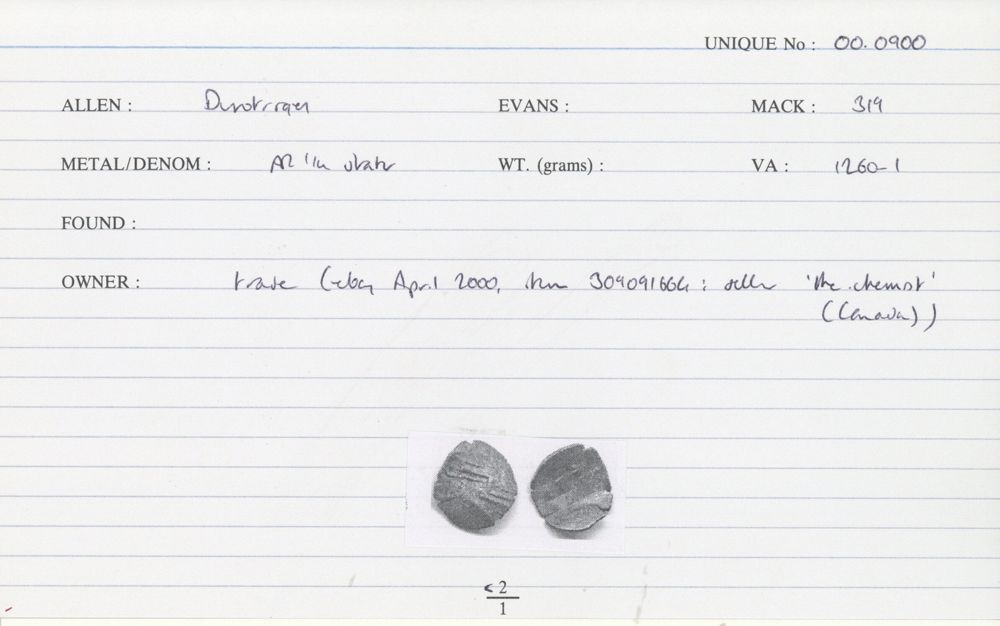 UNIQUE No : 00.0900
ALLEN : Durotrigan EVANS : MACK : 319
METAL/DENOM : AR 1/4 stater WT. (grams) : VA : 1260-1
FOUND :
OWNER : trade (eBay April 2000, item 309091664 : seller 'the.chemist'
(Canada))
2
1